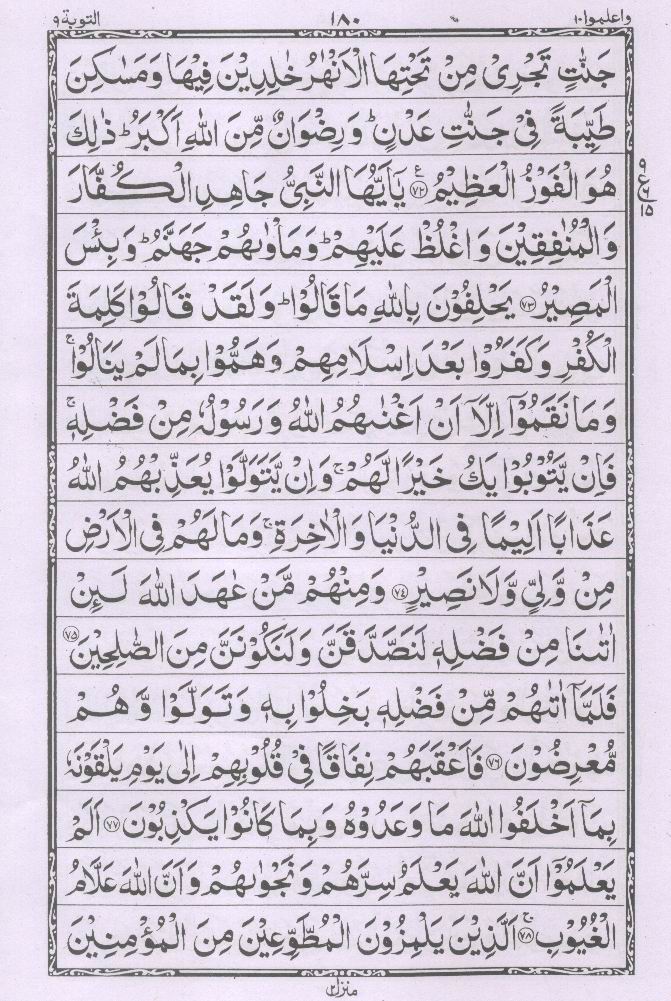 واعلموا ١٠ ١٨٠ التوبة ٩
جَنّٰتٍ تَجْرِیْ مِنْ تَحْتِهَا الْاَنْهٰرُ خٰلِدِیْنَ فِیْهَا وَ مَسٰکِنَ
طَیِّبَةً فِیْ جَنّٰتِ عَدْنٍ ؕ وَ رِضْوَانٌ مِّنَ اللّٰهِ اَکْبَرُ ؕ ذٰلِكَ
هُوَ الْفَوْزُ الْعَظِیْمُ ﴿۷۲﴾ یٰۤاَیُّهَا النَّبِیُّ جَاهِدِ الْکُفَّارَ
وَ الْمُنٰفِقِیْنَ وَ اغْلُظْ عَلَیْهِمْ ؕ وَ مَاْوٰىهُمْ جَهَنَّمُ ؕ وَ بِئْسَ
الْمَصِیْرُ ﴿۷۳﴾ یَحْلِفُوْنَ بِاللّٰهِ مَا قَالُوْا ؕ وَ لَقَدْ قَالُوْا کَلِمَةَ
الْکُفْرِ وَ کَفَرُوْا بَعْدَ اِسْلَامِهِمْ وَ هَمُّوْا بِمَا لَمْ یَنَالُوْا ۚ
وَ مَا نَقَمُوْۤا اِلَّاۤ اَنْ اَغْنٰىهُمُ اللّٰهُ وَ رَسُوْلُهٗ مِنْ فَضْلِهٖ ۚ
فَاِنْ یَّتُوْبُوْا یَكُ خَیْرًا لَّهُمْ ۚ وَ اِنْ یَّتَوَلَّوْا یُعَذِّبْهُمُ اللّٰهُ
عَذَابًا اَلِیْمًا فِی الدُّنْیَا وَ الْاٰخِرَةِ ۚ وَ مَا لَهُمْ فِی الْاَرْضِ
مِنْ وَّلِیٍّ وَّ لَا نَصِیْرٍ ﴿۷۴﴾ وَ مِنْهُمْ مَّنْ عٰهَدَ اللّٰهَ لَئِنْ
اٰتٰىنَا مِنْ فَضْلِهٖ لَنَصَّدَّقَنَّ وَ لَنَکُوْنَنَّ مِنَ الصّٰلِحِیْنَ ﴿۷۵﴾
فَلَمَّاۤ اٰتٰىهُمْ مِّنْ فَضْلِهٖ بَخِلُوْا بِهٖ وَ تَوَلَّوْا وَّ هُمْ
مُّعْرِضُوْنَ ﴿۷۶﴾ فَاَعْقَبَهُمْ نِفَاقًا فِیْ قُلُوْبِهِمْ اِلٰی یَوْمِ یَلْقَوْنَهٗ
بِمَاۤ اَخْلَفُوا اللّٰهَ مَا وَعَدُوْهُ وَ بِمَا کَانُوْا یَکْذِبُوْنَ ﴿۷۷﴾ اَلَمْ
یَعْلَمُوْۤا اَنَّ اللّٰهَ یَعْلَمُ سِرَّهُمْ وَ نَجْوٰىهُمْ وَ اَنَّ اللّٰهَ عَلَّامُ
الْغُیُوْبِ ﴿۷۸﴾ ۚ اَلَّذِیْنَ یَلْمِزُوْنَ الْمُطَّوِّعِیْنَ مِنَ الْمُؤْمِنِیْنَ
٩
ع ٦
١٥
منزل ٢